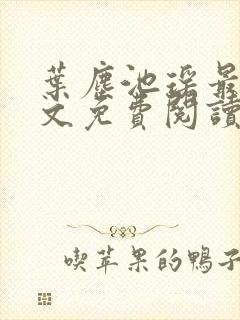 葉塵池瑤最
文免費閱讀
喫苹果的鴨子